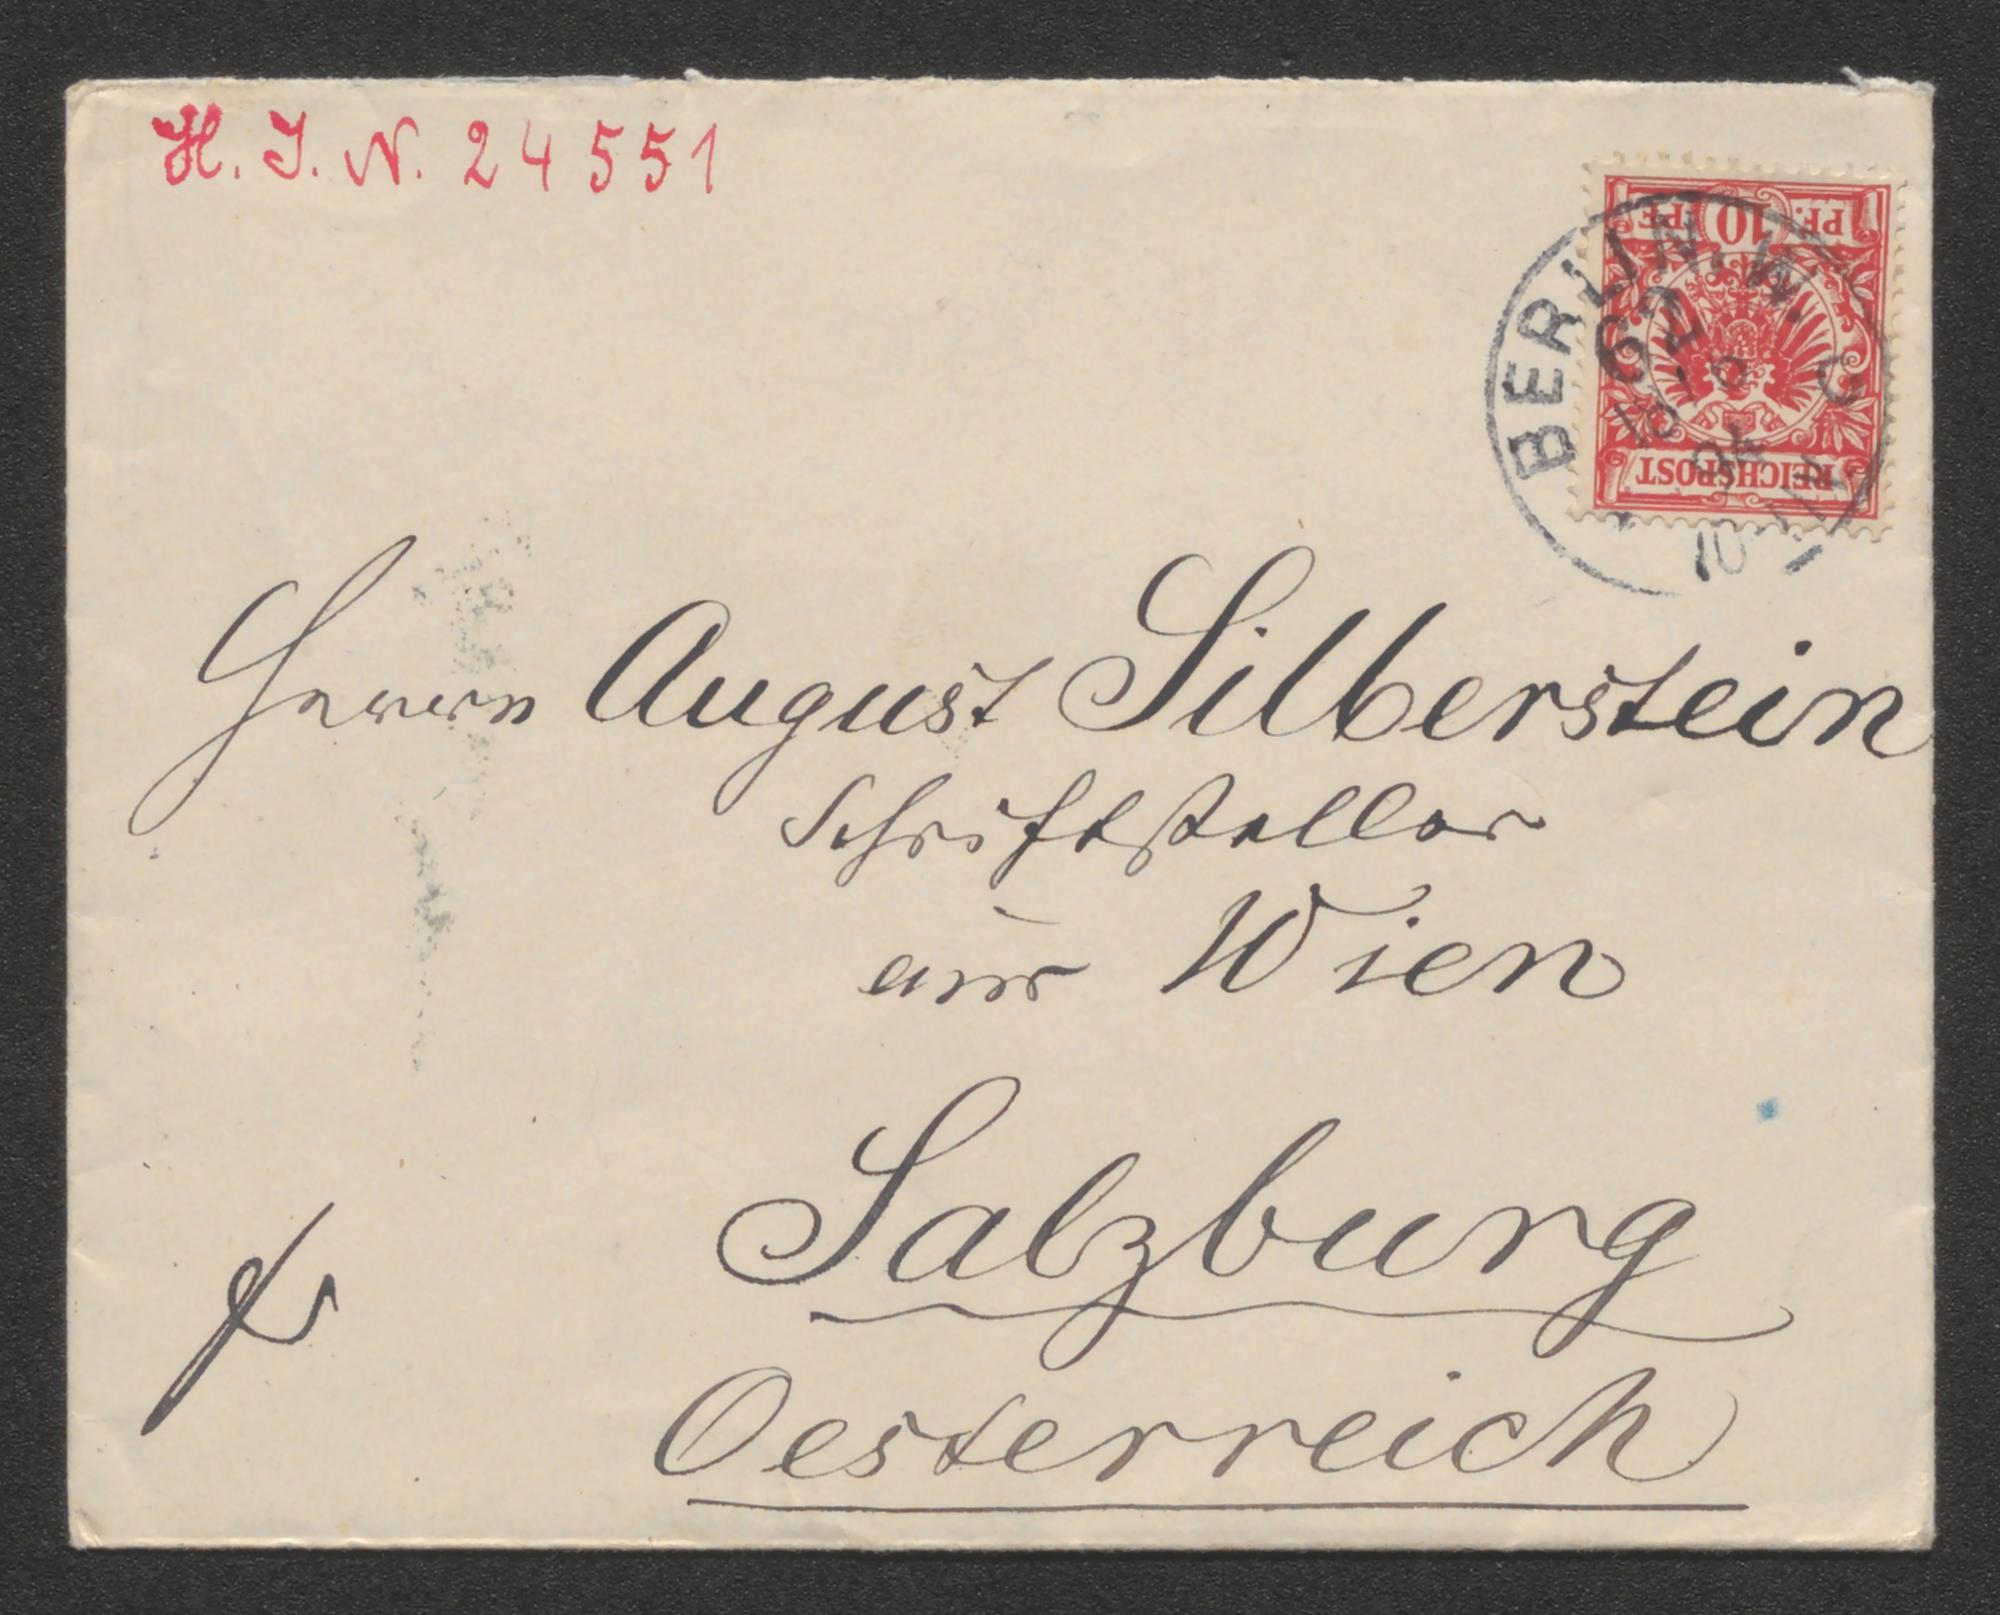 H. I. N. 24551
PF. 10 PF.
REICHSPOST
BERLIN. W.
62
94
Herrn August Silberstein
Schriftsteller
aus Wien
Salzburg
Oesterreich